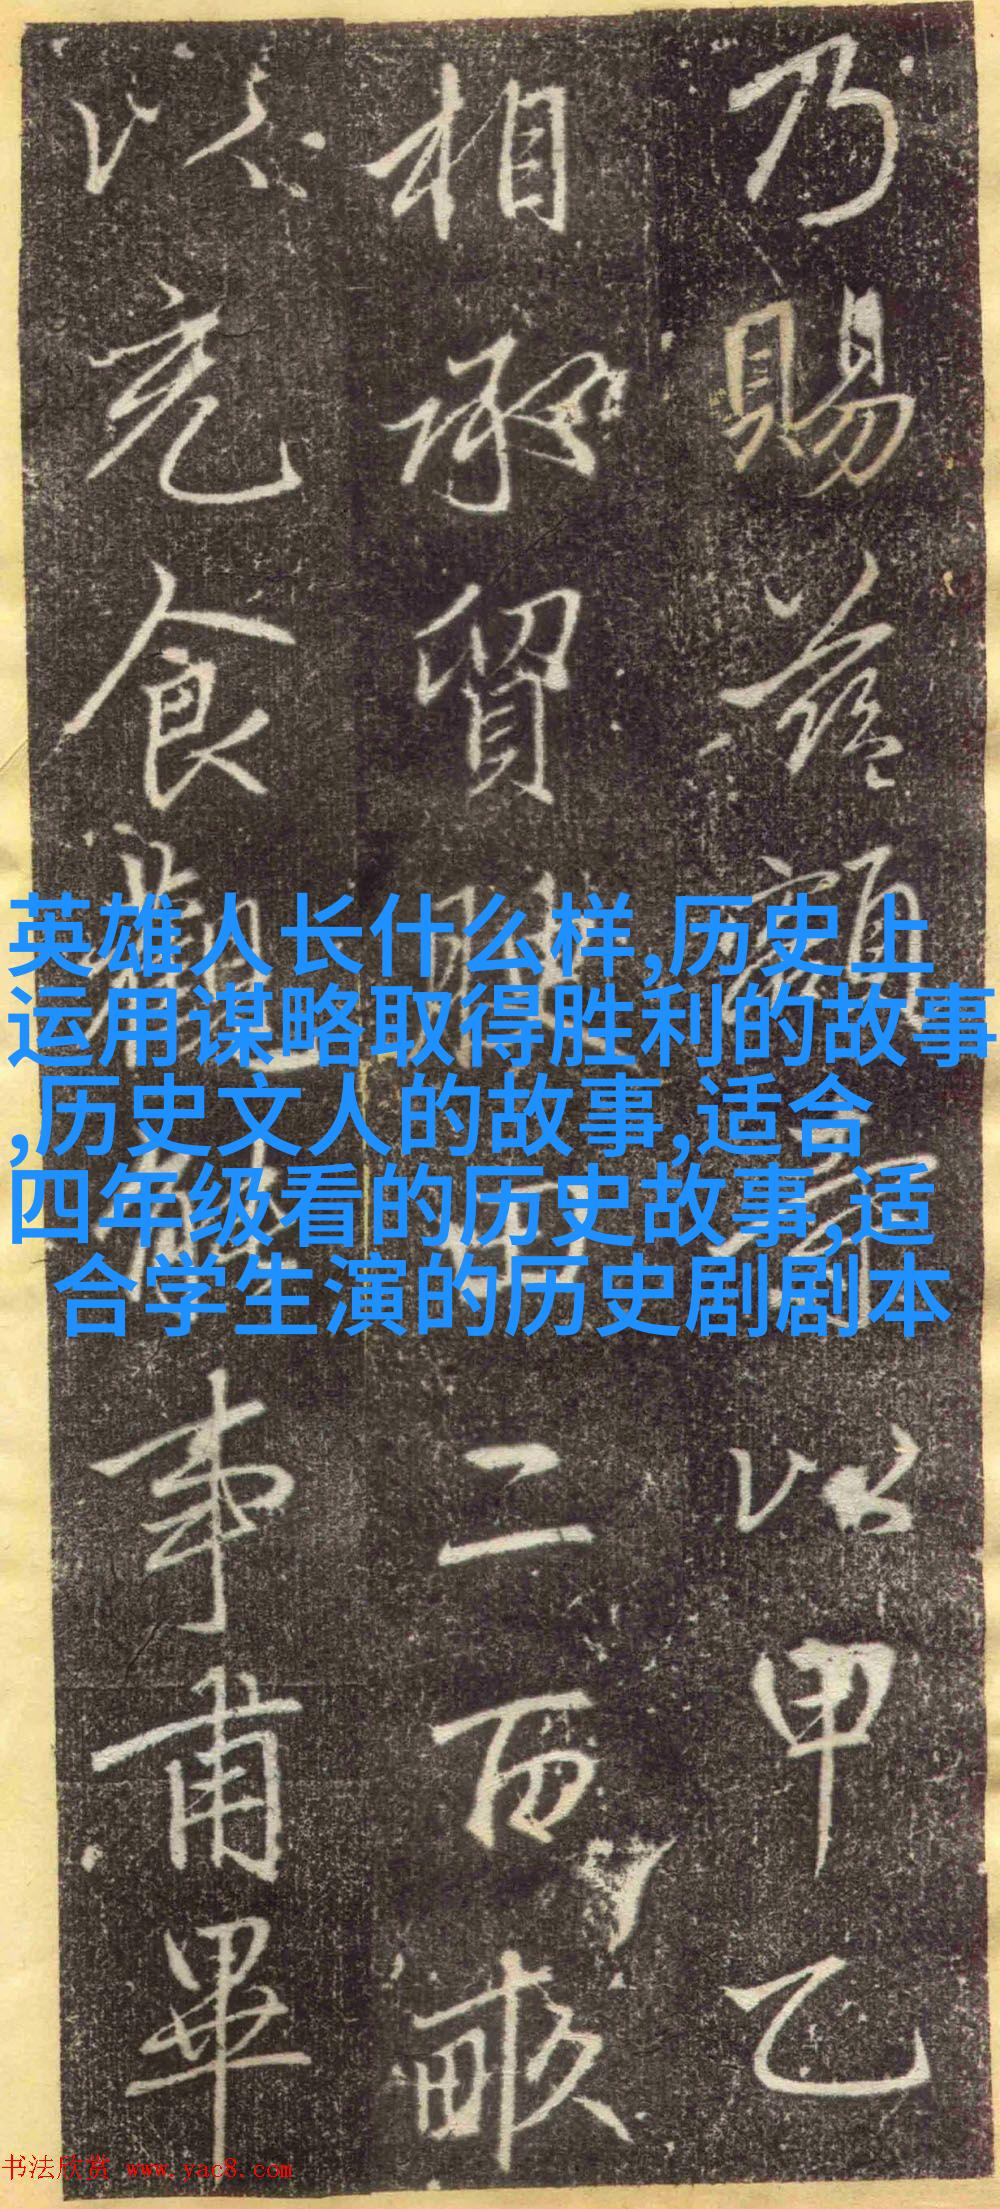 乃賜額以甲乙
相承貿腴田二百畝
以充食事甫畢
英雄人长什么样,历史上
运用谋略取得胜利的故事
,历史文人的故事,适合
四年级看的历史故事,适
合学生演的历史剧剧本
书法欣赏 www.yac8.com